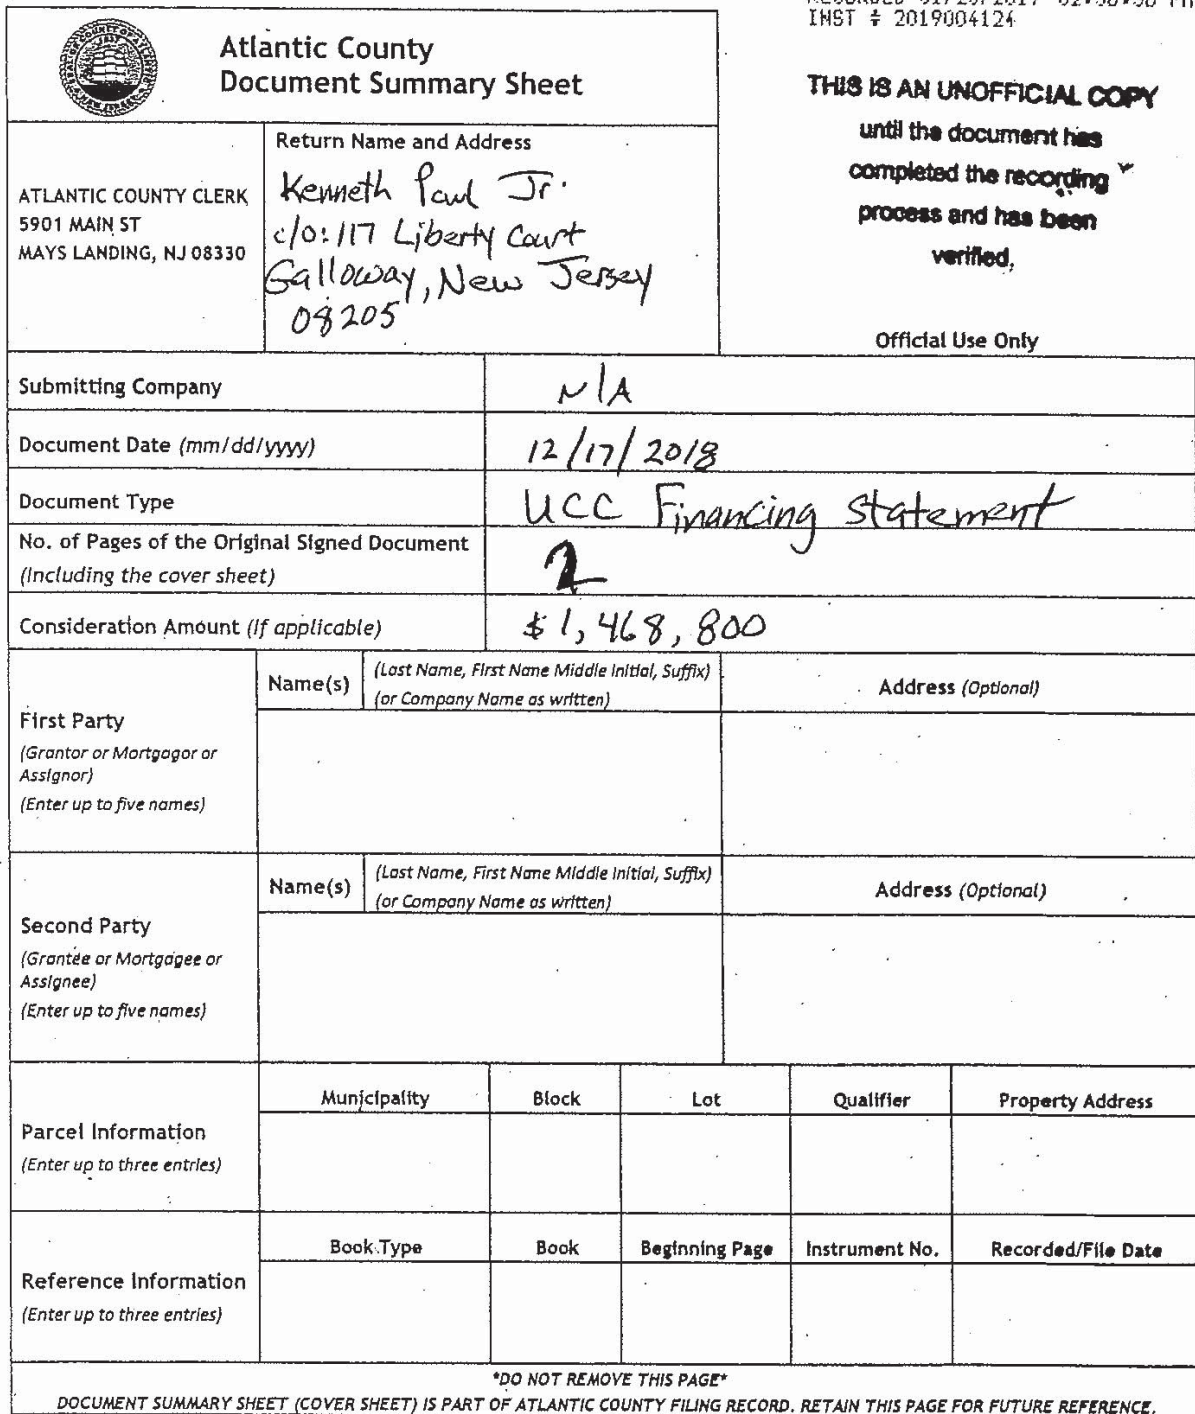 INST # 2019004124
Atlantic County
Document Summary Sheet
THIS IS AN UNOFFICIAL COPY
until the document has
completed the recording
process and has been
verified.
Official Use Only
ATLANTIC COUNTY CLERK
5901 MAIN ST
MAYS LANDING, NJ 08330
Return Name and Address
Kenneth Paul Jr.
c/o: 117 Liberty Court
Galloway, New Jersey
08205
Submitting Company N/A
Document Date (mm/dd/yyyy) 12/17/2018
Document Type UCC Financing Statement
No. of Pages of the Original Signed Document
(Including the cover sheet) 2
Consideration Amount (If applicable) $1,468,800
First Party
(Grantor or Mortgagor or
Assignor)
(Enter up to five names)
Name(s)
(Last Name, First Name Middle Initial, Suffix)
(or Company Name as written)
Address (Optional)
Second Party
(Grantee or Mortgagee or
Assignee)
(Enter up to five names)
Name(s)
(Last Name, First Name Middle Initial, Suffix)
(or Company Name as written)
Address (Optional)
Parcel Information
(Enter up to three entries)
Municipality Block Lot Qualifier Property Address
Reference Information
(Enter up to three entries)
Book Type Book Beginning Page Instrument No. Recorded/File Date
*DO NOT REMOVE THIS PAGE*
DOCUMENT SUMMARY SHEET (COVER SHEET) IS PART OF ATLANTIC COUNTY FILING RECORD. RETAIN THIS PAGE FOR FUTURE REFERENCE.